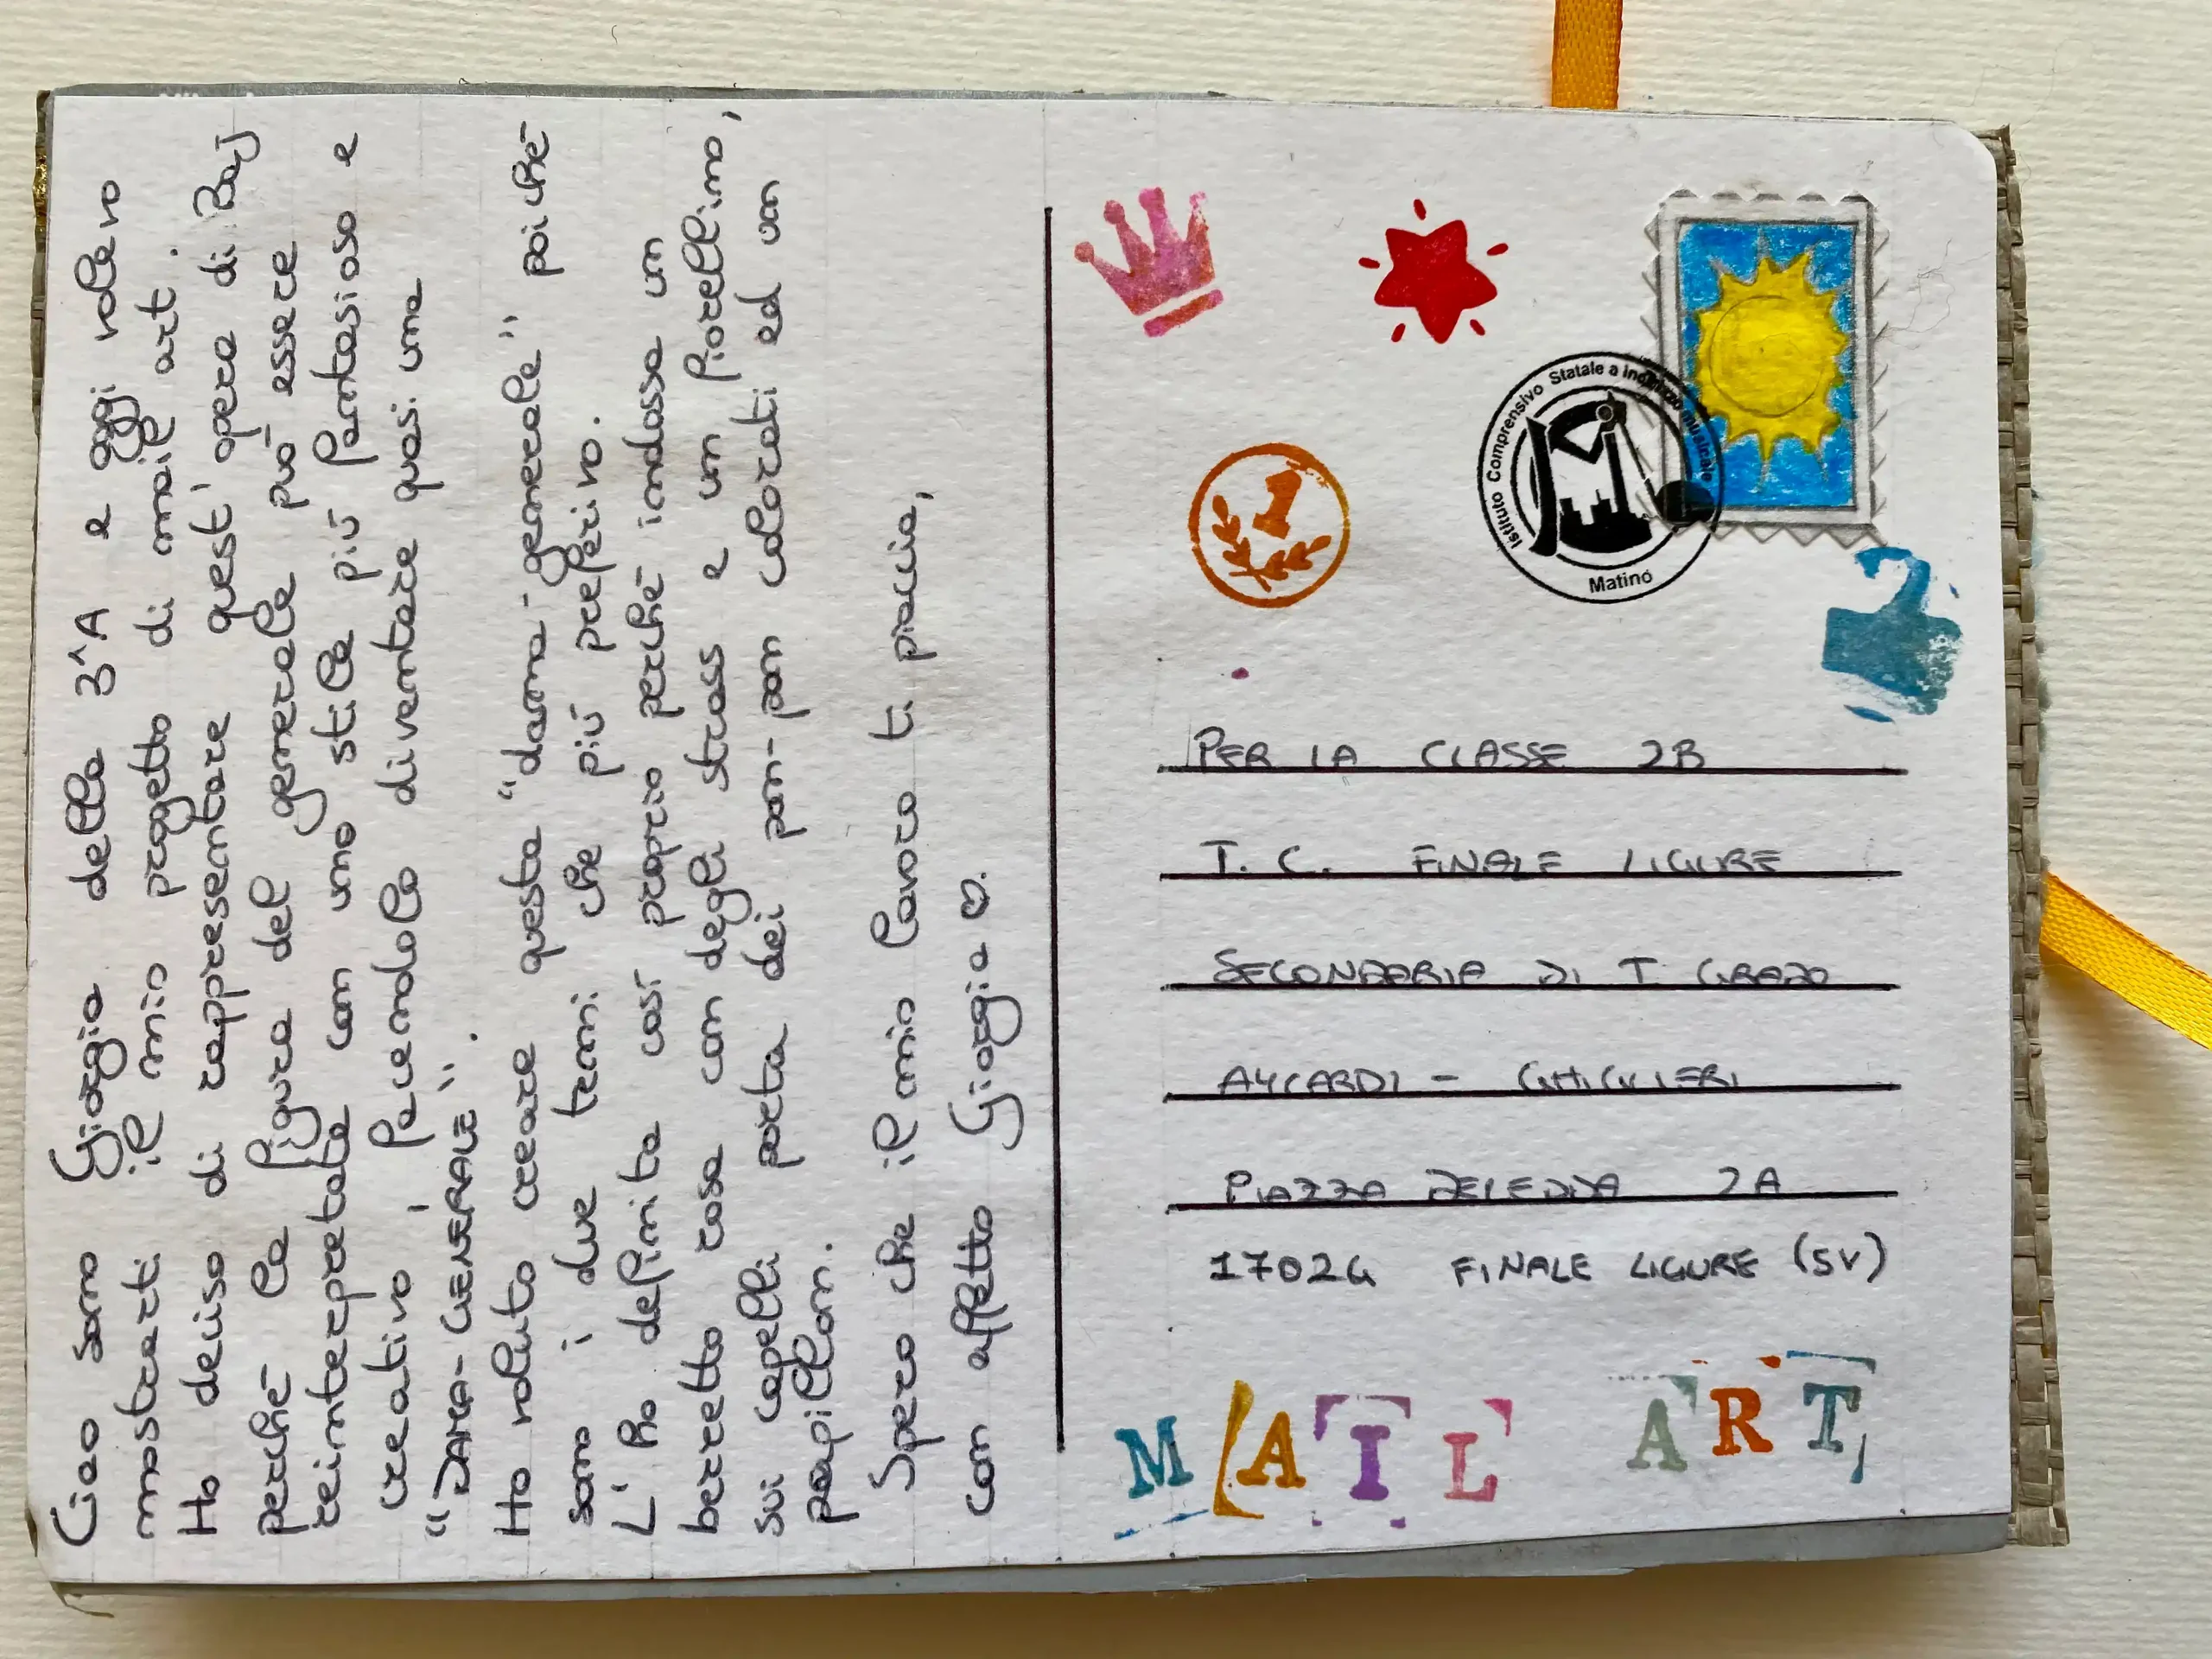 Ciao sono Giorgia della 3^A e oggi volevo
mostrarti il mio progetto di mail art.
Ho deciso di rappresentare quest'opera di Baj
perché la figura del generale può essere
reinterpretata con uno stile più fantasioso e
creativo, facendola diventare quasi una
"DAMA-GENERALE".
Ho voluto creare questa "dama-generale" poiché
sono i due temi che più preferivo.
L'ho definita così proprio perché indossa un
berretto rosa con degli strass e un fiorellino,
sui capelli porta dei pon-pon colorati ed un
papillon.
Spero che il mio lavoro ti piaccia,
con affetto Giorgia
Istituto Comprensivo Statale a indirizzo musicale
Matino
PER LA CLASSE 2B
I. C. FINALE LIGURE
SECONDARIA DI I GRADO
AYCARDI - GHIGLIERI
PIAZZA DELEDDA 2A
17024 FINALE LIGURE (SV)
MAIL ART